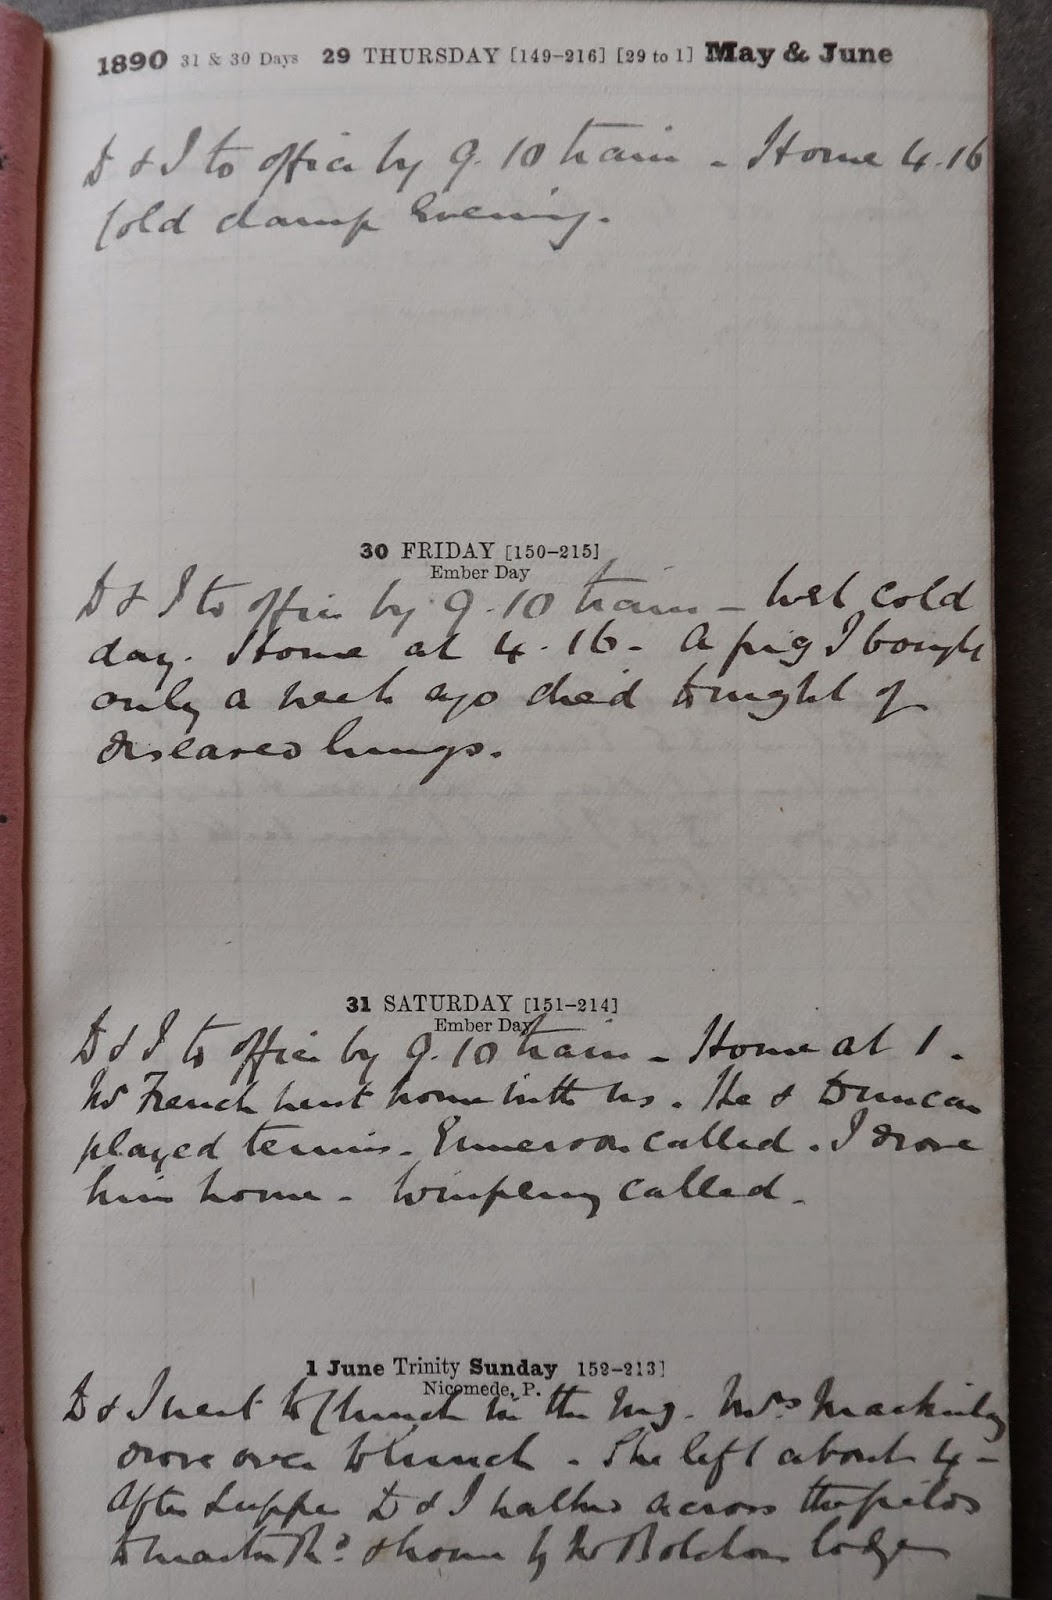 1890 31 & 30 Days 29 THURSDAY [149-216] [29 to 1] May & June
D & I to office by 9.10 train - Home 4.16
Cold damp Evening.
30 FRIDAY [150-215]
Ember Day
D & I to office by 9.10 train - Wet cold
day. Home at 4.16 - A pig I bought
only a week ago died tonight of
diseased lungs.
31 SATURDAY [151-214]
Ember Day
D & I to office by 9.10 train - Home at 1.
Mr French went home with us. He & Duncan
played tennis. Emerson called. I drove
him home - Wimpenny called.
1 June Trinity Sunday 152-213]
Nicomede, P.
D & I went to Church in the Mg. Mrs
drove over to lunch. She left about 4 -
After supper D & I walked across the fields
to Rd & home by Mr lodge